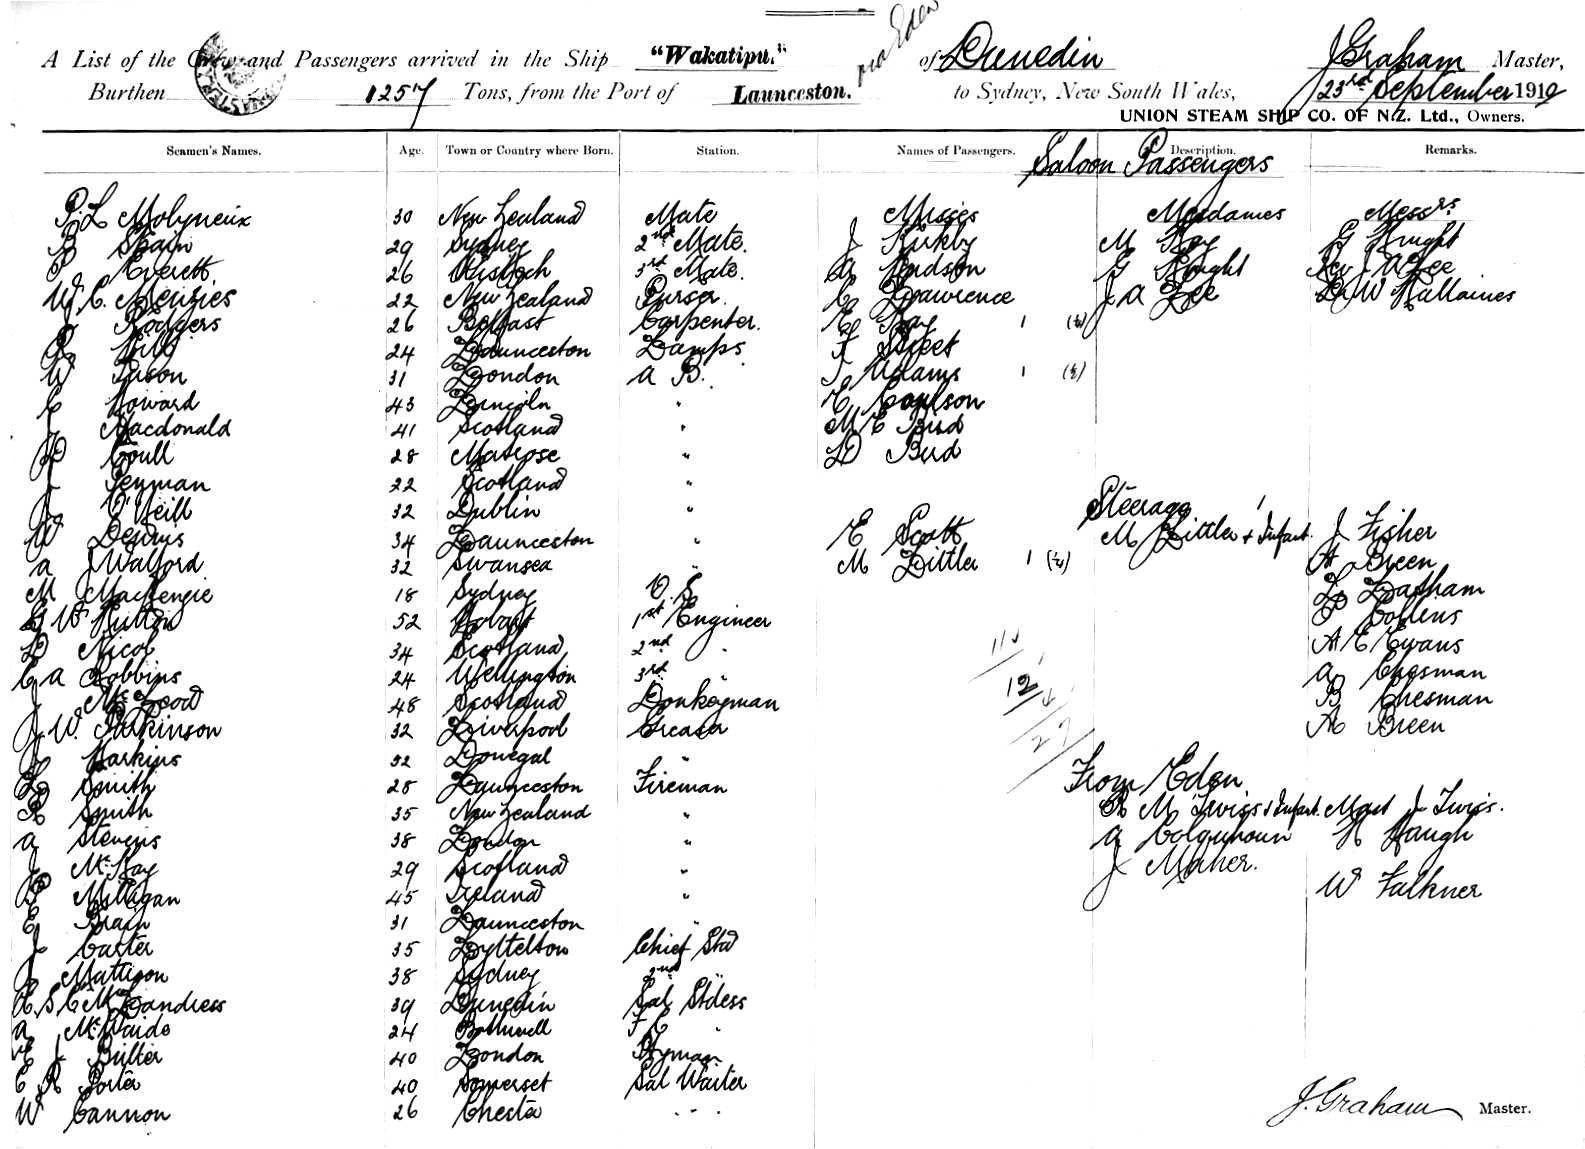 via Eden
A List of the Crew and Passengers arrived in the Ship "Wakatipu." of Dunedin J Graham Master,
Burthen 1257 Tons, from the Port of Launceston. to Sydney, New South Wales, 23rd September 1910
UNION STEAM SHIP CO. OF N.Z. Ltd., Owners.
Seamen's Names. Age. Town or Country where Born. Station. Names of Passengers. Description. Remarks.
Saloon Passengers
P. L Molyneux 30 New Zealand Mate Misses Mesdames Messrs
B Spain 29 Sydney 2nd Mate. J Kirkby M Hay G Knight
P Everett 26 Wisbech 3rd Mate. A Hudson G Knight Rev J A Lee
W. C. Menzies 22 New Zealand Purser. C Lawrence J A Lee Dr W Hallaines
Rodgers 26 Belfast Carpenter. E Hay 1 (½)
R Hill 24 Launceston Lamps F Street
W Tuson 31 London A B. T Adams 1 (½)
C Howard 43 Lincoln " E Coulson
J Macdonald 41 Scotland " M E Bird
D Coull 28 Matrose " D Bird
J Penman 22 Scotland "
J O'Neill 32 Dublin " Steerage
W Dennis 34 Launceston " E Scott M Littler + Infant. J Fisher
A J Walford 32 Swansea " M Littler 1 (½) H Breen
M MacKenzie 18 Sydney O. S. L Latham
G W Hutton 52 Hobart 1st Engineer P Collens
D Nicol 34 Scotland 2nd " A E Evans
C A Robbins 24 Wellington 3rd " A Chesman
J McLeod 48 Scotland Donkeyman B Chesman
J W. Parkinson 32 Liverpool Greaser A Breen
J Harkins 52 Donegal "
L Smith 28 Launceston Fireman From Eden
R Smith 35 New Zealand " R M Twiss + Infant. Mast J Twiss.
A Stevens 38 London " A Colquhoun H Haugh
J McKay 29 Scotland " J Maher.
P Milligan 45 Ireland " W Falkner
E Brain 31 Launceston "
J Carter 35 Lyttelton Chief Std
J Mattison 38 Sydney 2nd "
H. S. C McLandress 39 Dunedin Sal Stdess
A McWaide 24 Bothwell F C "
E J Butler 40 London P'tyman
C R Porter 40 Somerset Sal Waiter
W Cannon 26 Chester " "
J. Graham Master.